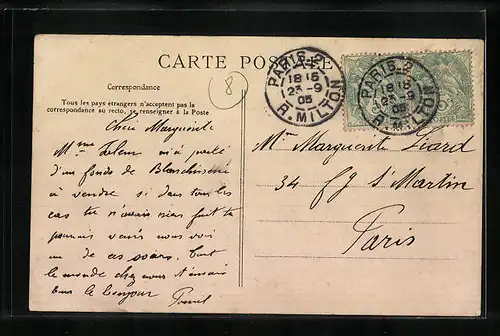 CARTE POSTALE
Correspondance
Tous les pays étrangers n'acceptent pas la
correspondance au recto, se renseigner à la Poste
8
PARIS 2
18 15
23 - 9
05
R. MILTON
PARIS 2
18 15
23 - 9
05
R. MILTON
Chère Marguerite
Mme m'a parlé
d'un fonds de Blanchisserie
à vendre si dans tous les
cas tu n'avais rien fait tu
pourrais venir nous voir
un de ces soirs. Tout
le monde chez nous
tous le bonjour
Mme Marguerite Liard
34 fg St Martin
Paris